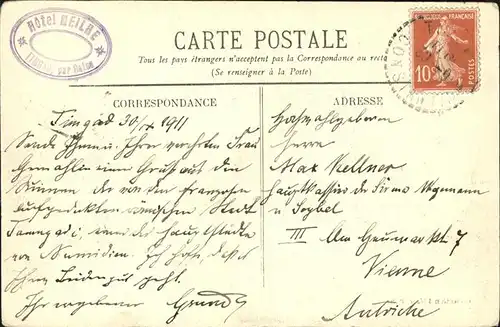 Hôtel MEILLE
TIMGAD par Batna
CARTE POSTALE
Tous les pays étrangers n'acceptent pas la Correspondance au recto
(Se renseigner à la Poste)
RÉPUBLIQUE FRANÇAISE
10c
POSTES
CORRESPONDANCE
Timgad 30/ 1911
Sende Ihnen u. Ihrer verehrten Frau
Gemahlin einen Gruß aus den
Ruinen der von den Franzosen
aufgedeckten römischen Stadt
von Numidien. Ich hoffe, daß es
Ihnen beiden gut geht.
Ihr ergebener
ADRESSE
Hochwohlgeboren
Herrn
Max Kellner
Hauptkassier der Firma Wegemann
u. Seybel
III Am Heumarkt 7
Vienne
Autriche